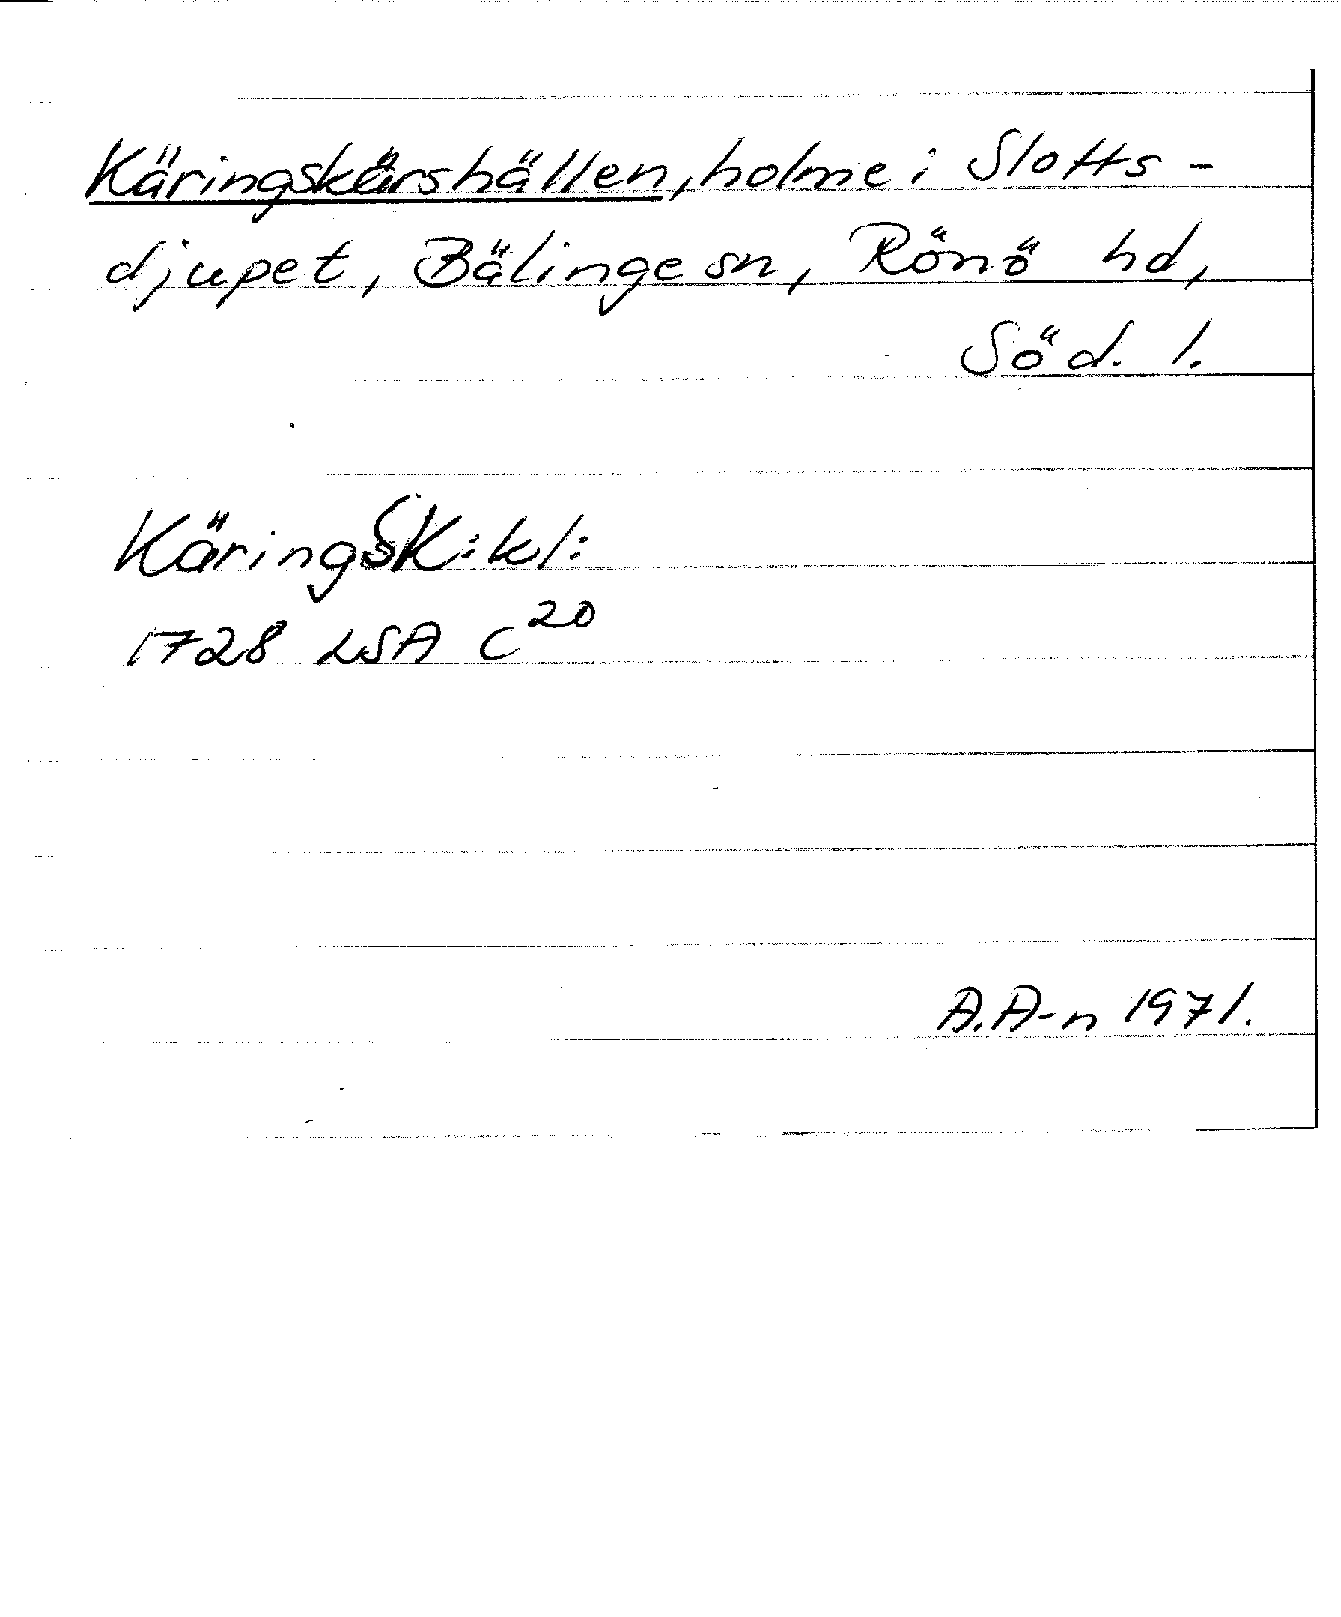 Käringskärshällen, holme i Slotts-
djupet, Bälinge sn, Rönö hd,
Söd. l.
KäringSK: kl:
1728 LSA C 20
A.A-n 1971.